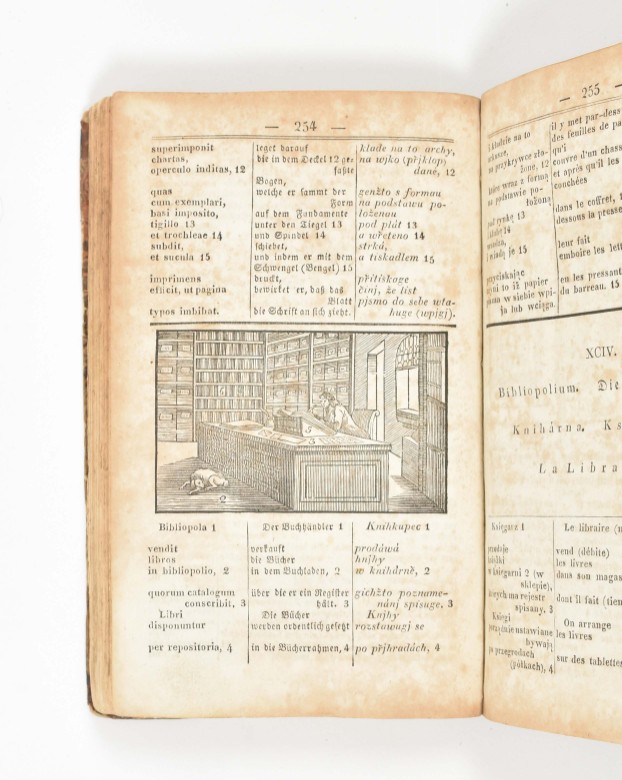 — 254 —
superimponit
chartas,
operculo inditas, 12
quas
cum exemplari,
basi imposito,
tigillo 13
et trochleae 14
subdit,
et sucula 15
imprimens
efficit, ut pagina
typos imbibat.
leget darauf
die in dem Deckel 12 ge=
faßte
Bogen,
welche er sammt der
Form
auf dem Fundamente
unter den Tiegel 13
und Spindel 14
schiebet,
und indem er mit dem
Schwengel (Bengel) 15
druckt,
bewirket er, daß das
Blatt
die Schrift an sich zieht.
klade na to archy,
na wjko (přjklop)
dané, 12
genžto s formau
na podstawu po-
loženau
pod plát 13
a wřeteno 14
strká,
a tiskadlem 15
přitiskoge
činj, že list
pjsmo do sebe wta-
huge (wpjgj).
5
3
2
Bibliopola 1
vendit
libros
in bibliopolio, 2
quorum catalogum
conscribit, 3
Libri
disponuntur
per repositoria, 4
Der Buchhändler 1
verkauft
die Bücher
in dem Buchladen, 2
über die er ein Register
hält. 3
Die Bücher
werden ordentlich gesetzt
in die Bücherrahmen, 4
Knihkupec 1
prodáwá
knjhy
w knihárně, 2
gichžto pozname-
nánj spisuge. 3
Knjhy
rozstawugj se
po přjhradách, 4
— 255 —
i kładzie na to
na przykrywce zło-
żone, 12
na podstawie po-
łożoną
pod tyglę 13
i śrubę 14
15
przyciskając
i to iż papier
pisma w siebie wpi-
ja lub wciąga.
il y met par-dess
des feuilles de pa
qu'i
couvre d'un chass
et après qu'il les
couchées
dans le coffret, 1
dessous la presse
leur fait
emboire les lett
en les pressant
du barreau. 15
XCIV.
Bibliopolium. Die
Knihárna. Ks
La Libra
Księgarz 1
przedaje
książki
w księgarni 2 (w
sklepie),
których rejestr
spisany. 3
Księgi
porządnie ustawiane
bywają
po przegrodach
(półkach), 4
Le libraire (m
vend (débite)
les livres
dans son magas
dont il fait (tien
On arrange
les livres
sur des tablettes